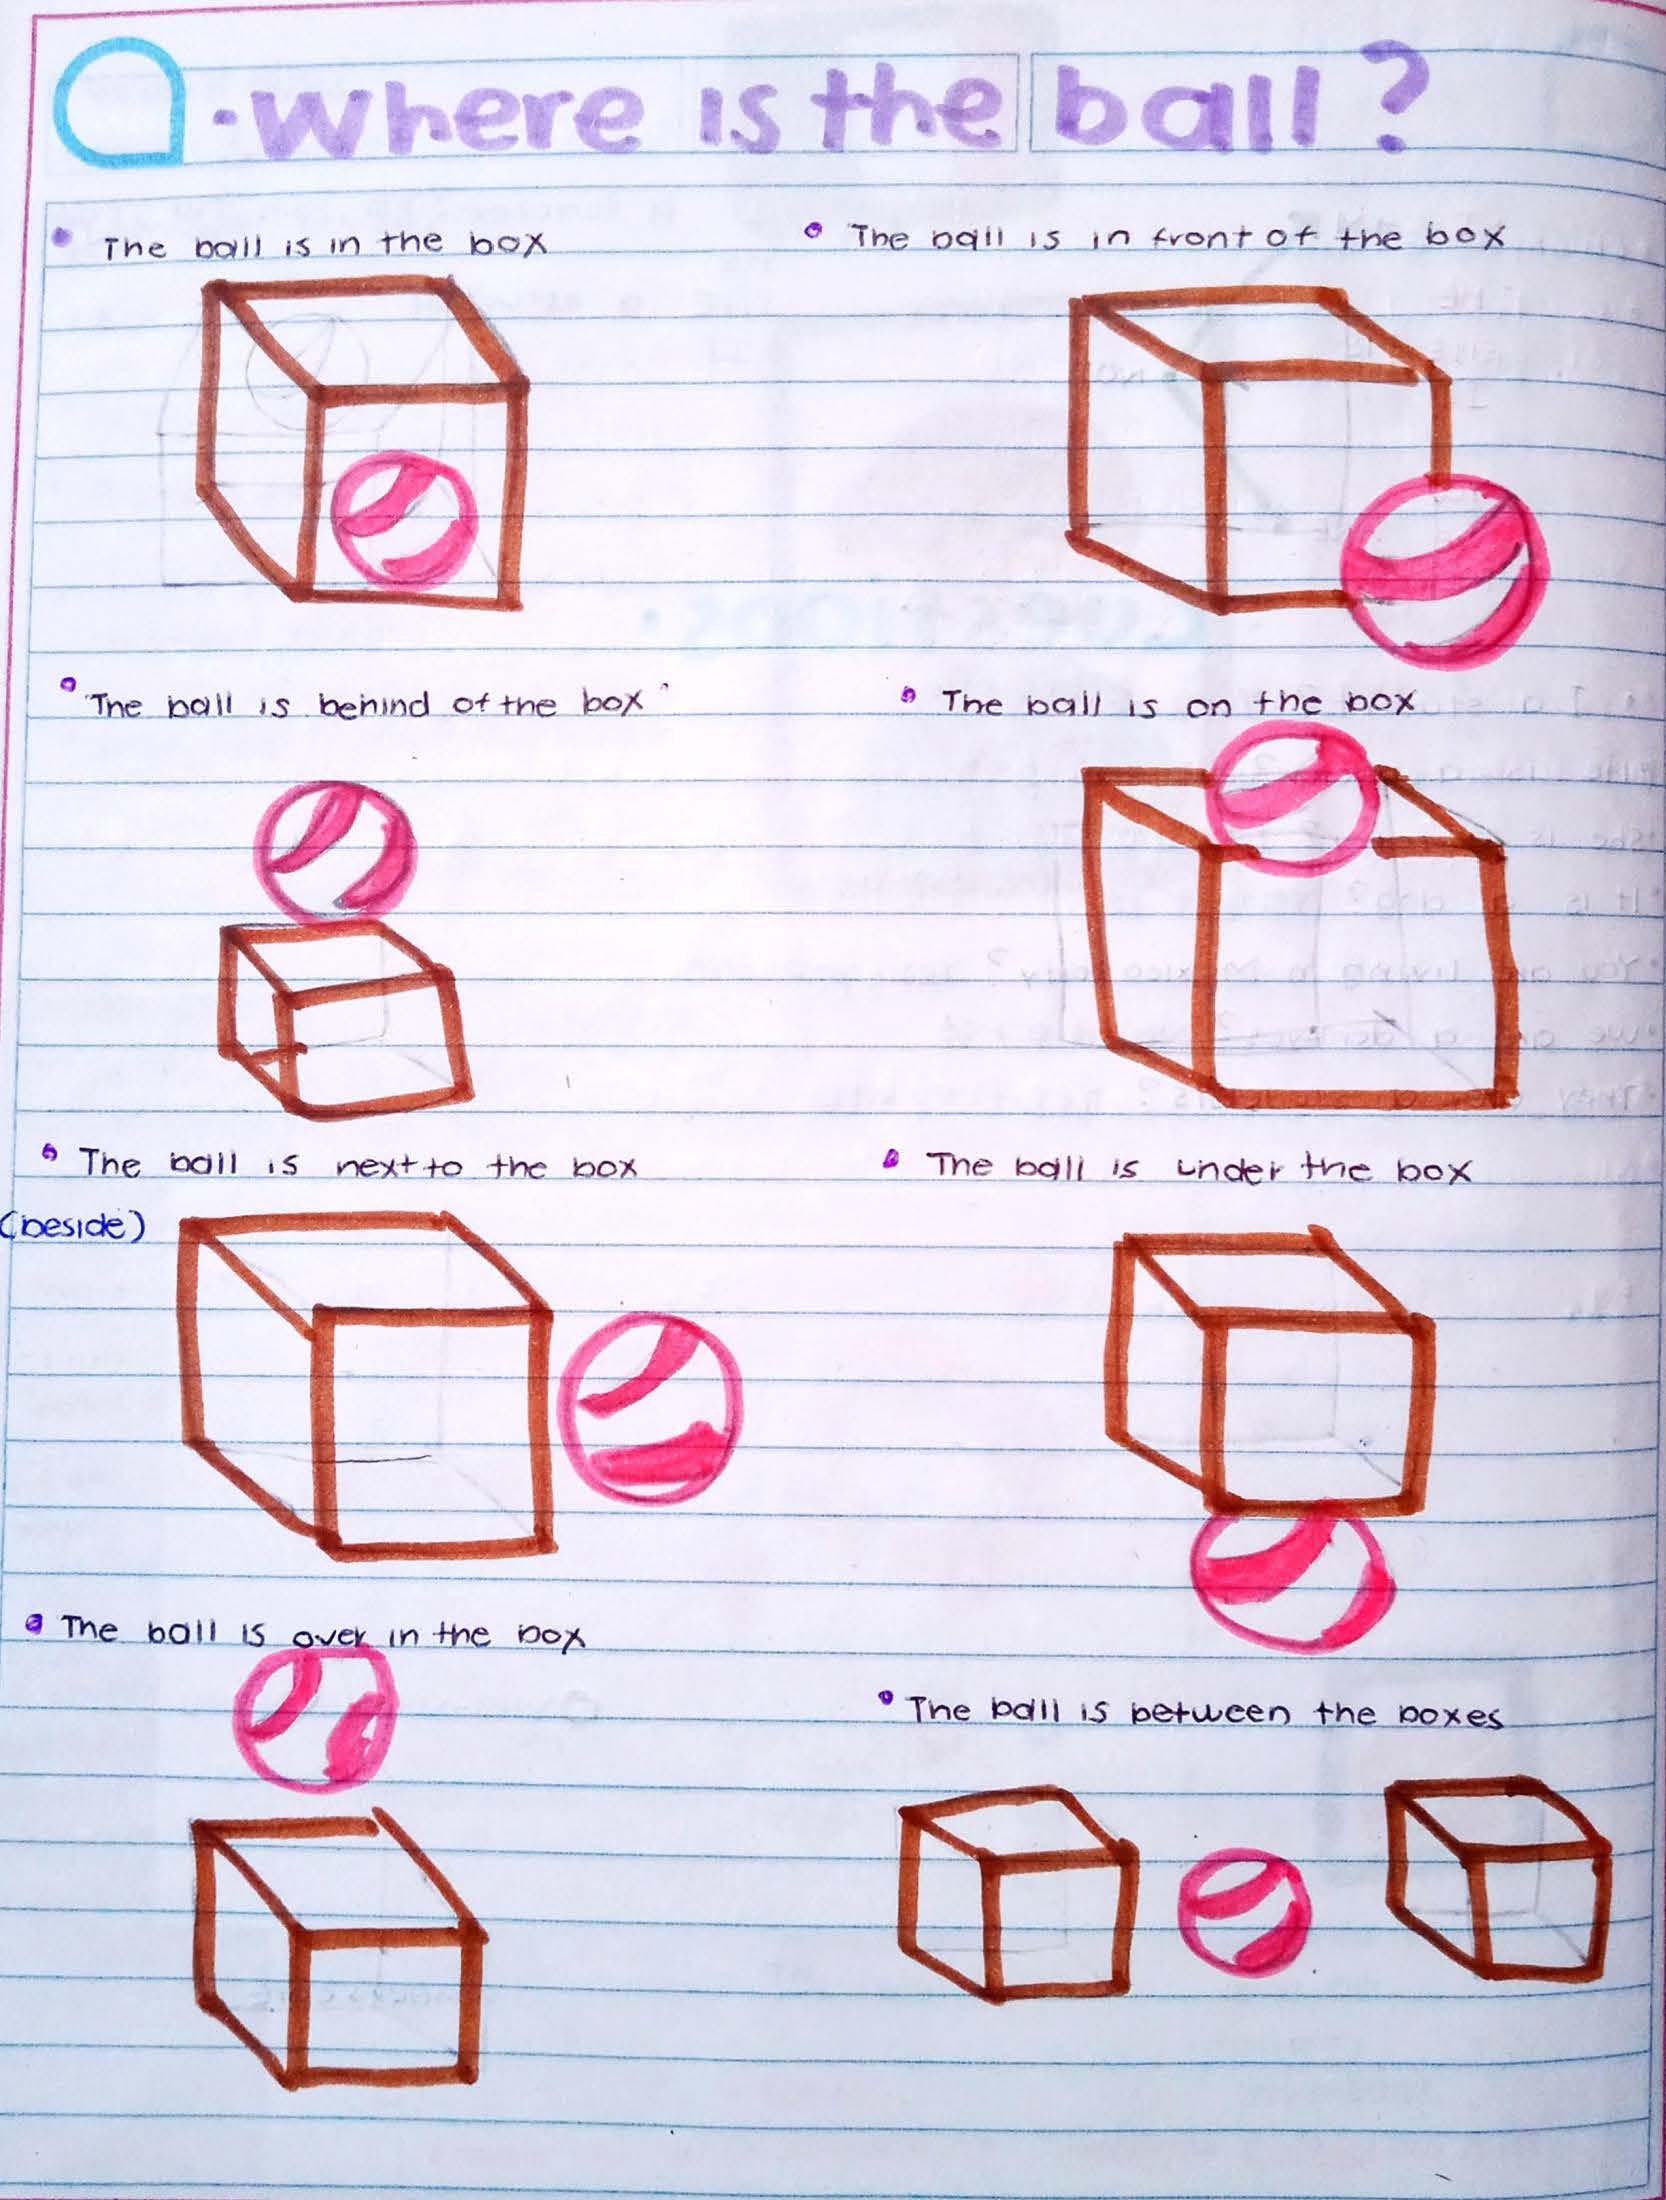 a. where is the ball?
• The ball is in the box
• The ball is in front of the box
• The ball is behind of the box
• The ball is on the box
• The ball is next to the box
(beside)
• The ball is under the box
• The ball is over in the box
• The ball is between the boxes